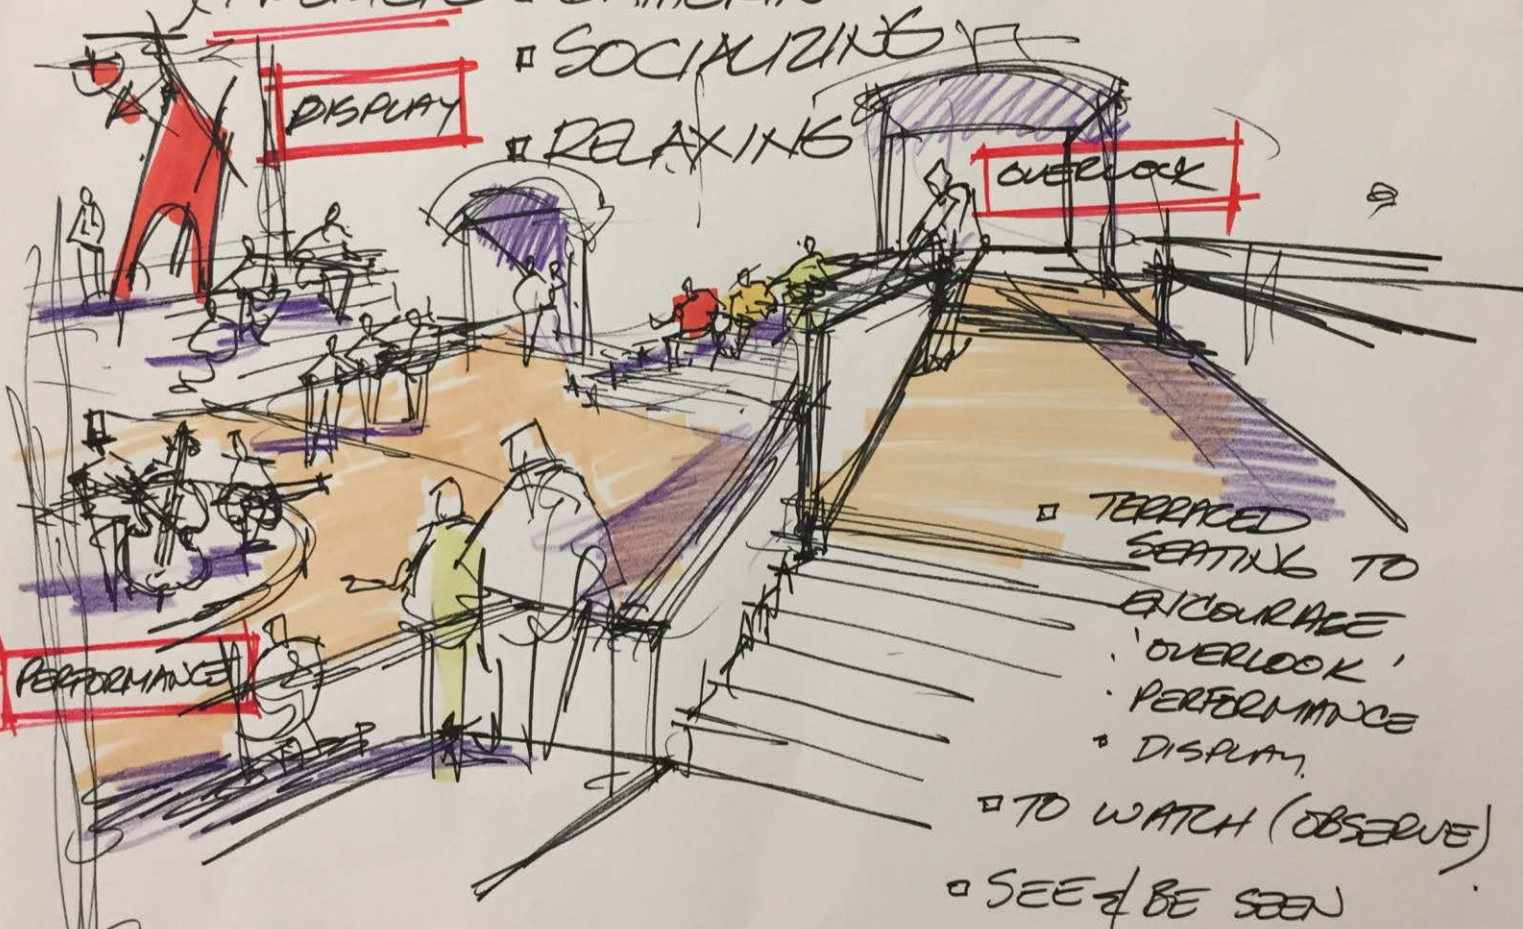 ▫ SOCIALIZING
DISPLAY
▫ RELAXING
OVERLOOK
PERFORMANCE
▫ TERRACED
SEATING TO
ENCOURAGE
'OVERLOOK'
· PERFORMANCE
· DISPLAY
▫ TO WATCH (OBSERVE)
▫ SEE & BE SEEN